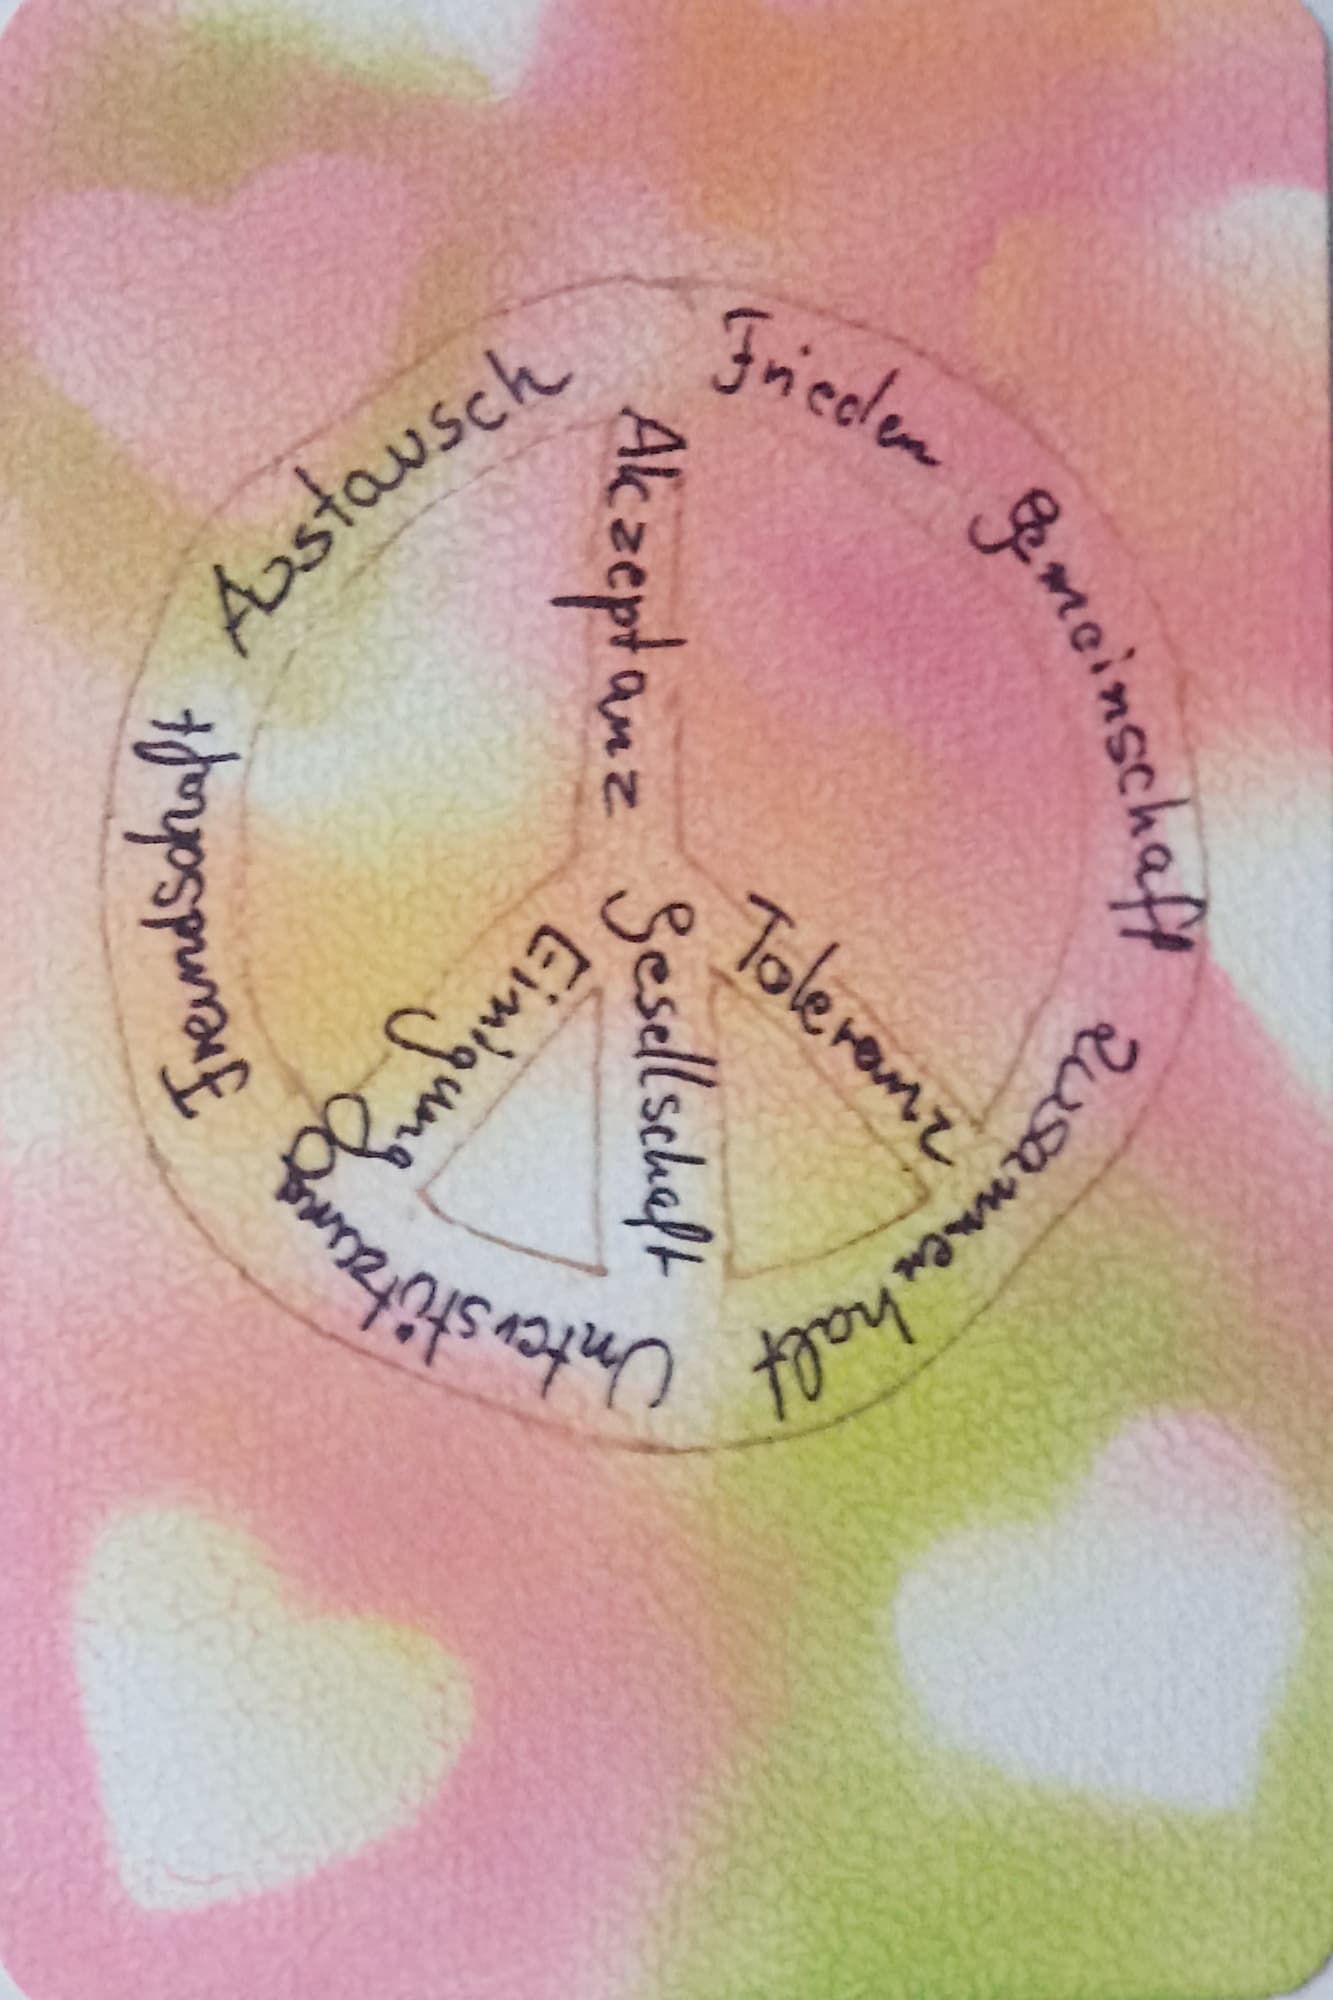 Frieden
Gemeinschaft
Zusammenhalt
Unterstützung
Freundschaft
Austausch
Akzeptanz
Gesellschaft
Toleranz
Einigung